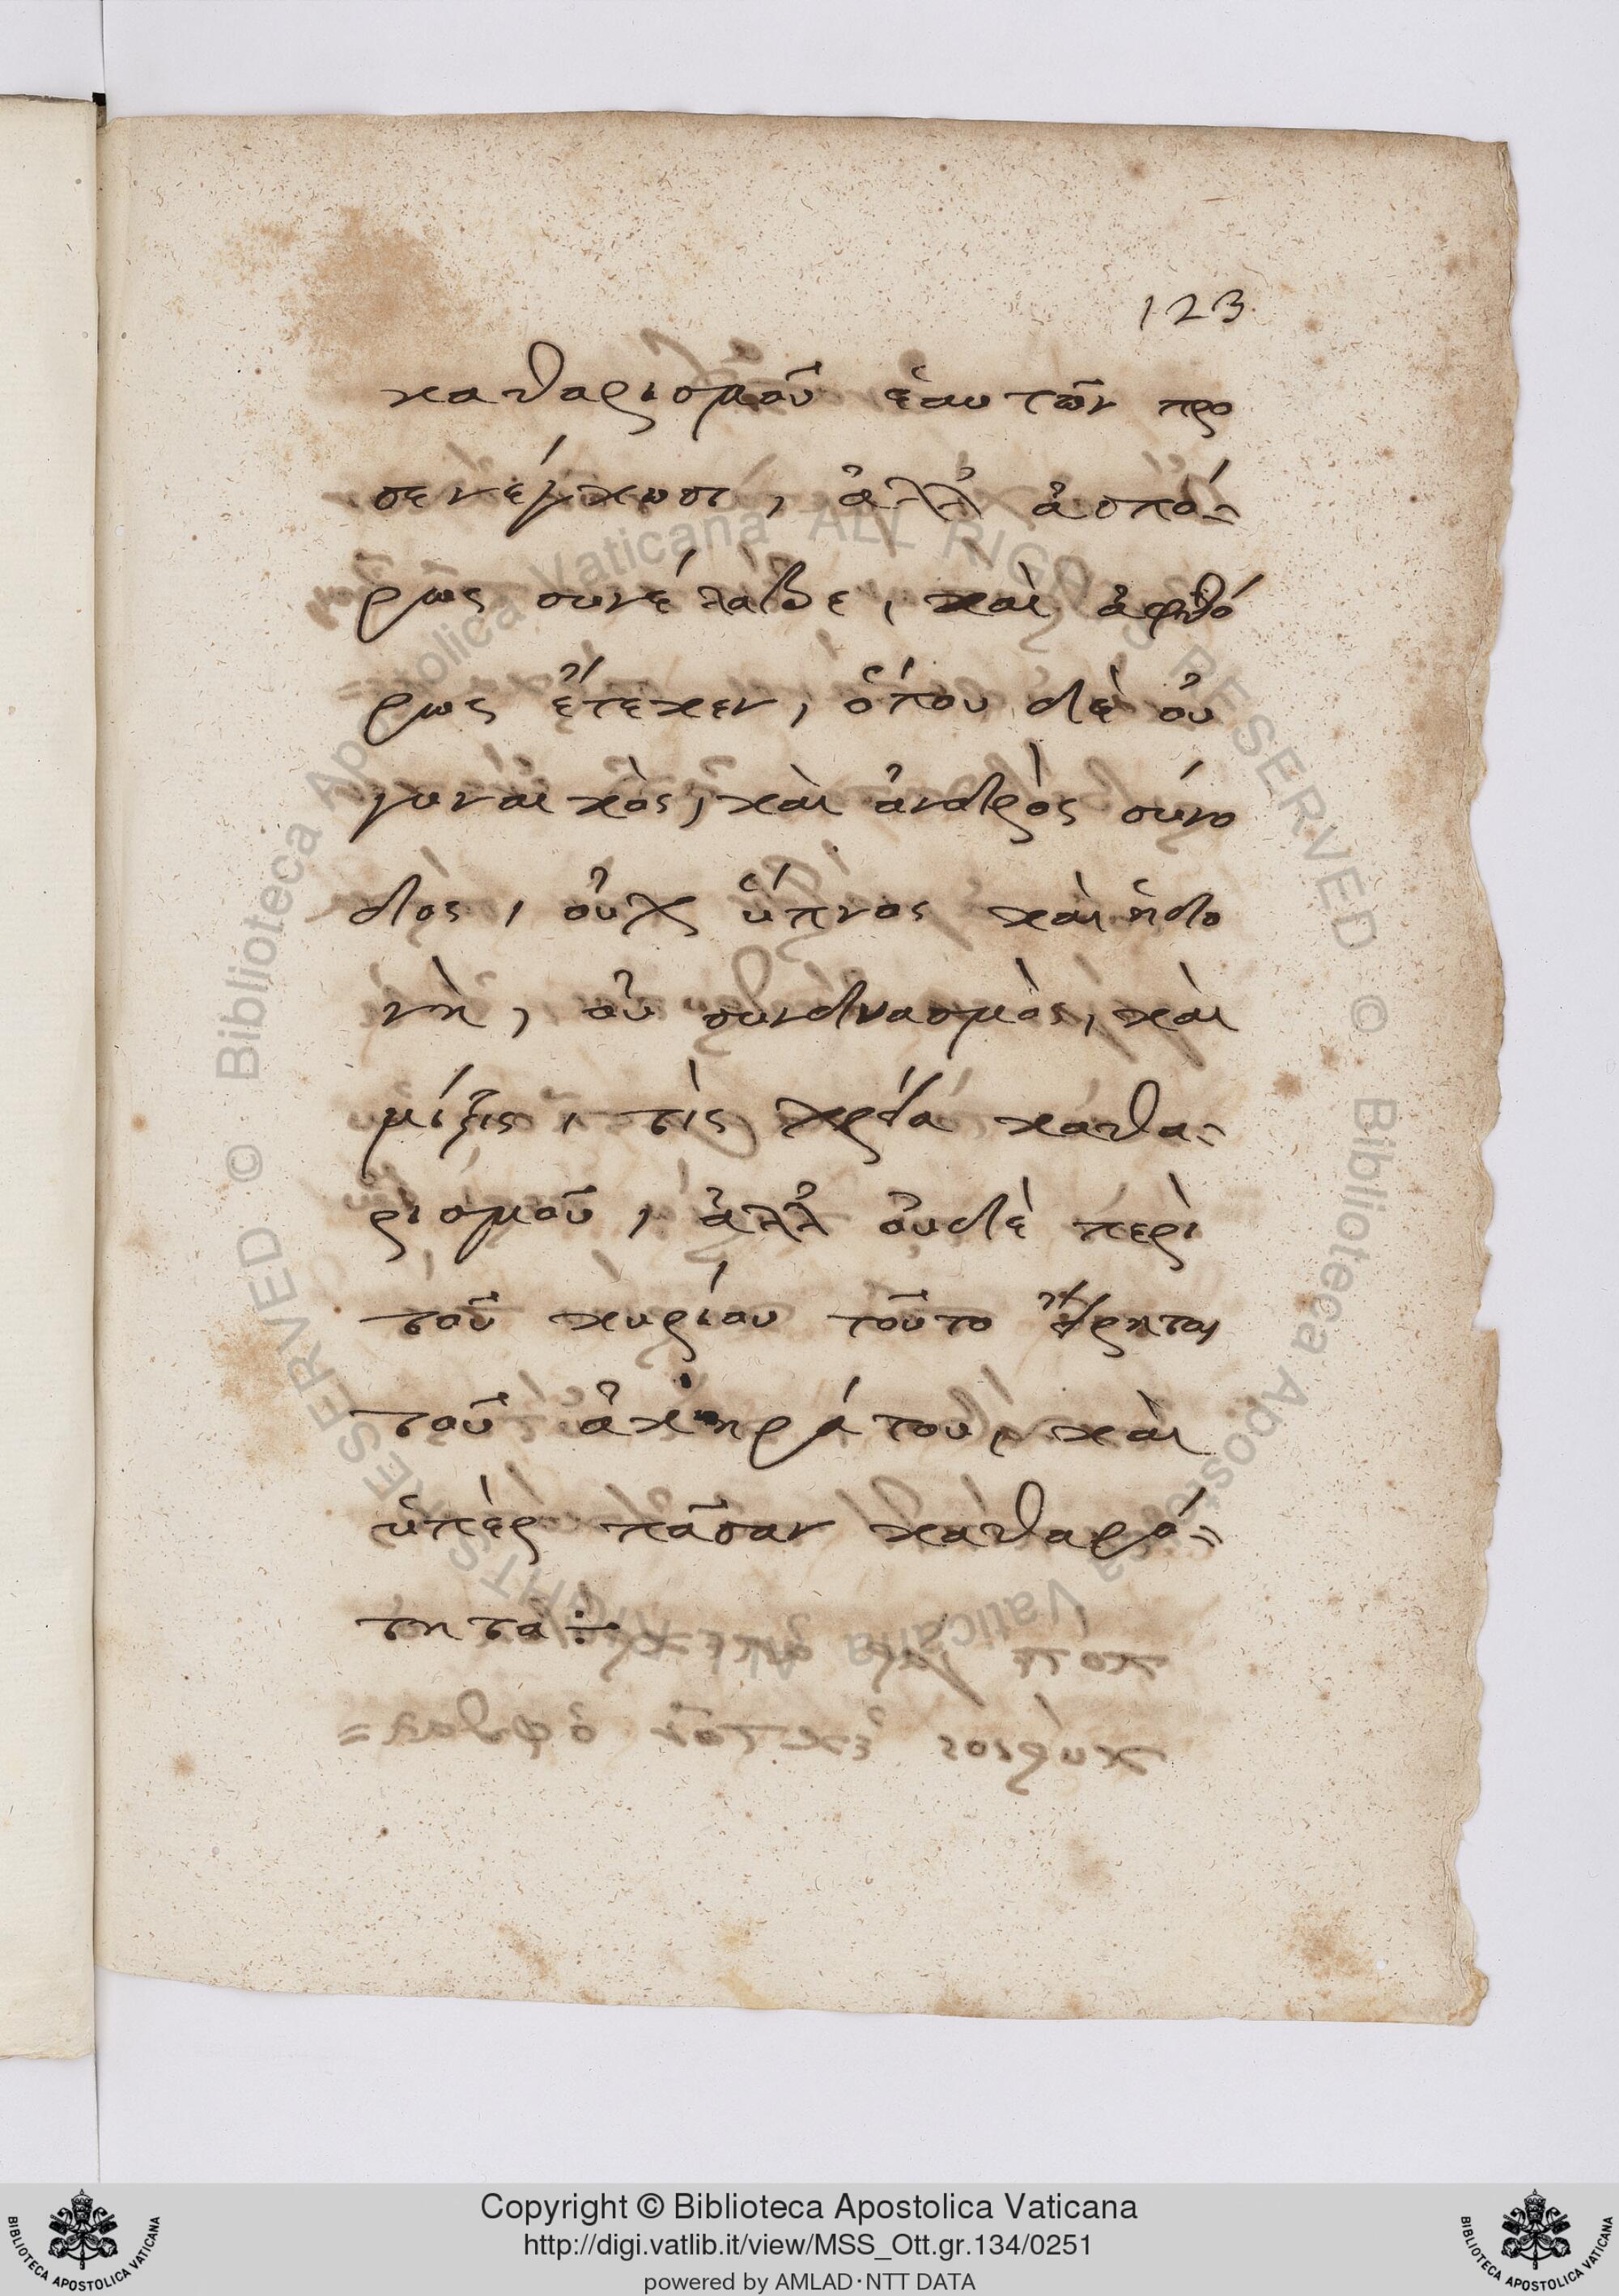 123
καθαρισμοῦ ἑαυτῶν προ
σενέγκωσι, ἀλλ' ἀσπό=
ρως συνέλαβε, καὶ ἀφθό
ρως ἔτεκεν, ὅπου δὲ οὐ
γυναικὸς, καὶ ἀνδρὸς σύνο
δος, οὐχ ὕπνος καὶ ἡδο
νὴ, οὐ συνδυασμὸς, καὶ
μίξις, τὶς χρεία καθα=
ρισμοῦ, ἀλλ' οὐδὲ περὶ
τοῦ κυρίου τοῦτο εἴρηται
τοῦ ἀκηράτου, καὶ
ὑπὲρ πᾶσαν καθαρό=
τητα ÷
Biblioteca Apostolica Vaticana ALL RIGHTS RESERVED ©
Biblioteca Apostolica Vaticana ALL RIGHTS RESERVED ©
Copyright © Biblioteca Apostolica Vaticana
http://digi.vatlib.it/view/MSS_Ott.gr.134/0251
powered by AMLAD·NTT DATA
BIBLIOTECA APOSTOLICA VATICANA
BIBLIOTECA APOSTOLICA VATICANA